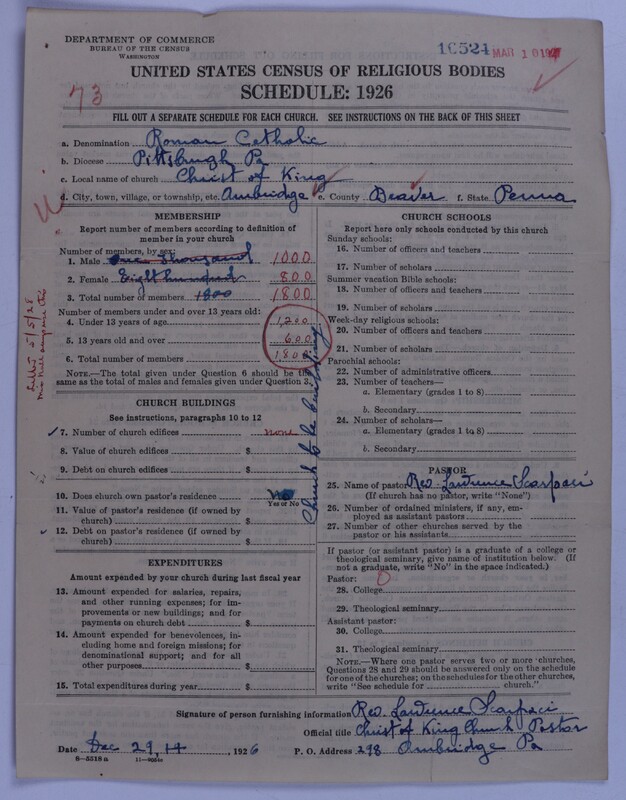 DEPARTMENT OF COMMERCE
BUREAU OF THE CENSUS
WASHINGTON
16524 MAR 10 192
UNITED STATES CENSUS OF RELIGIOUS BODIES
SCHEDULE: 1926
73
FILL OUT A SEPARATE SCHEDULE FOR EACH CHURCH. SEE INSTRUCTIONS ON THE BACK OF THIS SHEET
a. Denomination Roman Catholic
b. Diocese Pittsburgh Pa
c. Local name of church Christ of King
d. City, town, village, or township, etc. Ambridge e. County Beaver f. State Penna
MEMBERSHIP
Report number of members according to definition of member in your church
Number of members, by sex:
1. Male One Thousand 1000
2. Female Eight hundred 800
3. Total number of members 1800 1800
Number of members under and over 13 years old:
4. Under 13 years of age 1,200
5. 13 years old and over 600
6. Total number of members 1800
NOTE.—The total given under Question 6 should be the
same as the total of males and females given under Question 3.
CHURCH BUILDINGS
See instructions, paragraphs 10 to 12
7. Number of church edifices none
8. Value of church edifices $
9. Debt on church edifices $
Church to be built
10. Does church own pastor's residence No
Yes or No
11. Value of pastor's residence (if owned by
church) $
12. Debt on pastor's residence (if owned by
church) $
EXPENDITURES
Amount expended by your church during last fiscal year
13. Amount expended for salaries, repairs,
and other running expenses; for im-
provements or new buildings; and for
payments on church debt $
14. Amount expended for benevolences, in-
cluding home and foreign missions; for
denominational support; and for all
other purposes $
15. Total expenditures during year $
CHURCH SCHOOLS
Report here only schools conducted by this church
Sunday schools:
16. Number of officers and teachers
17. Number of scholars
Summer vacation Bible schools:
18. Number of officers and teachers
19. Number of scholars
Week-day religious schools:
20. Number of officers and teachers
21. Number of scholars
Parochial schools:
22. Number of administrative officers
23. Number of teachers—
a. Elementary (grades 1 to 8)
b. Secondary
24. Number of scholars—
a. Elementary (grades 1 to 8)
b. Secondary
PASTOR
25. Name of pastor Rev. Lawrence Scarpaci
(If church has no pastor, write "None")
26. Number of ordained ministers, if any, em-
ployed as assistant pastors
27. Number of other churches served by the
pastor or his assistants
If pastor (or assistant pastor) is a graduate of a college or
theological seminary, give name of institution below. (If
not a graduate, write "No" in the space indicated.)
Pastor:
28. College
29. Theological seminary
Assistant pastor:
30. College
31. Theological seminary
NOTE.—Where one pastor serves two or more churches,
Questions 28 and 29 should be answered only on the schedule
for one of the churches; on the schedules for the other churches,
write "See schedule for church."
Signature of person furnishing information Rev. Lawrence Scarpaci
Official title Christ of King Church Pastor
Date Dec 29, 14, 1926 P. O. Address 298 Ambridge Pa
8—5518a